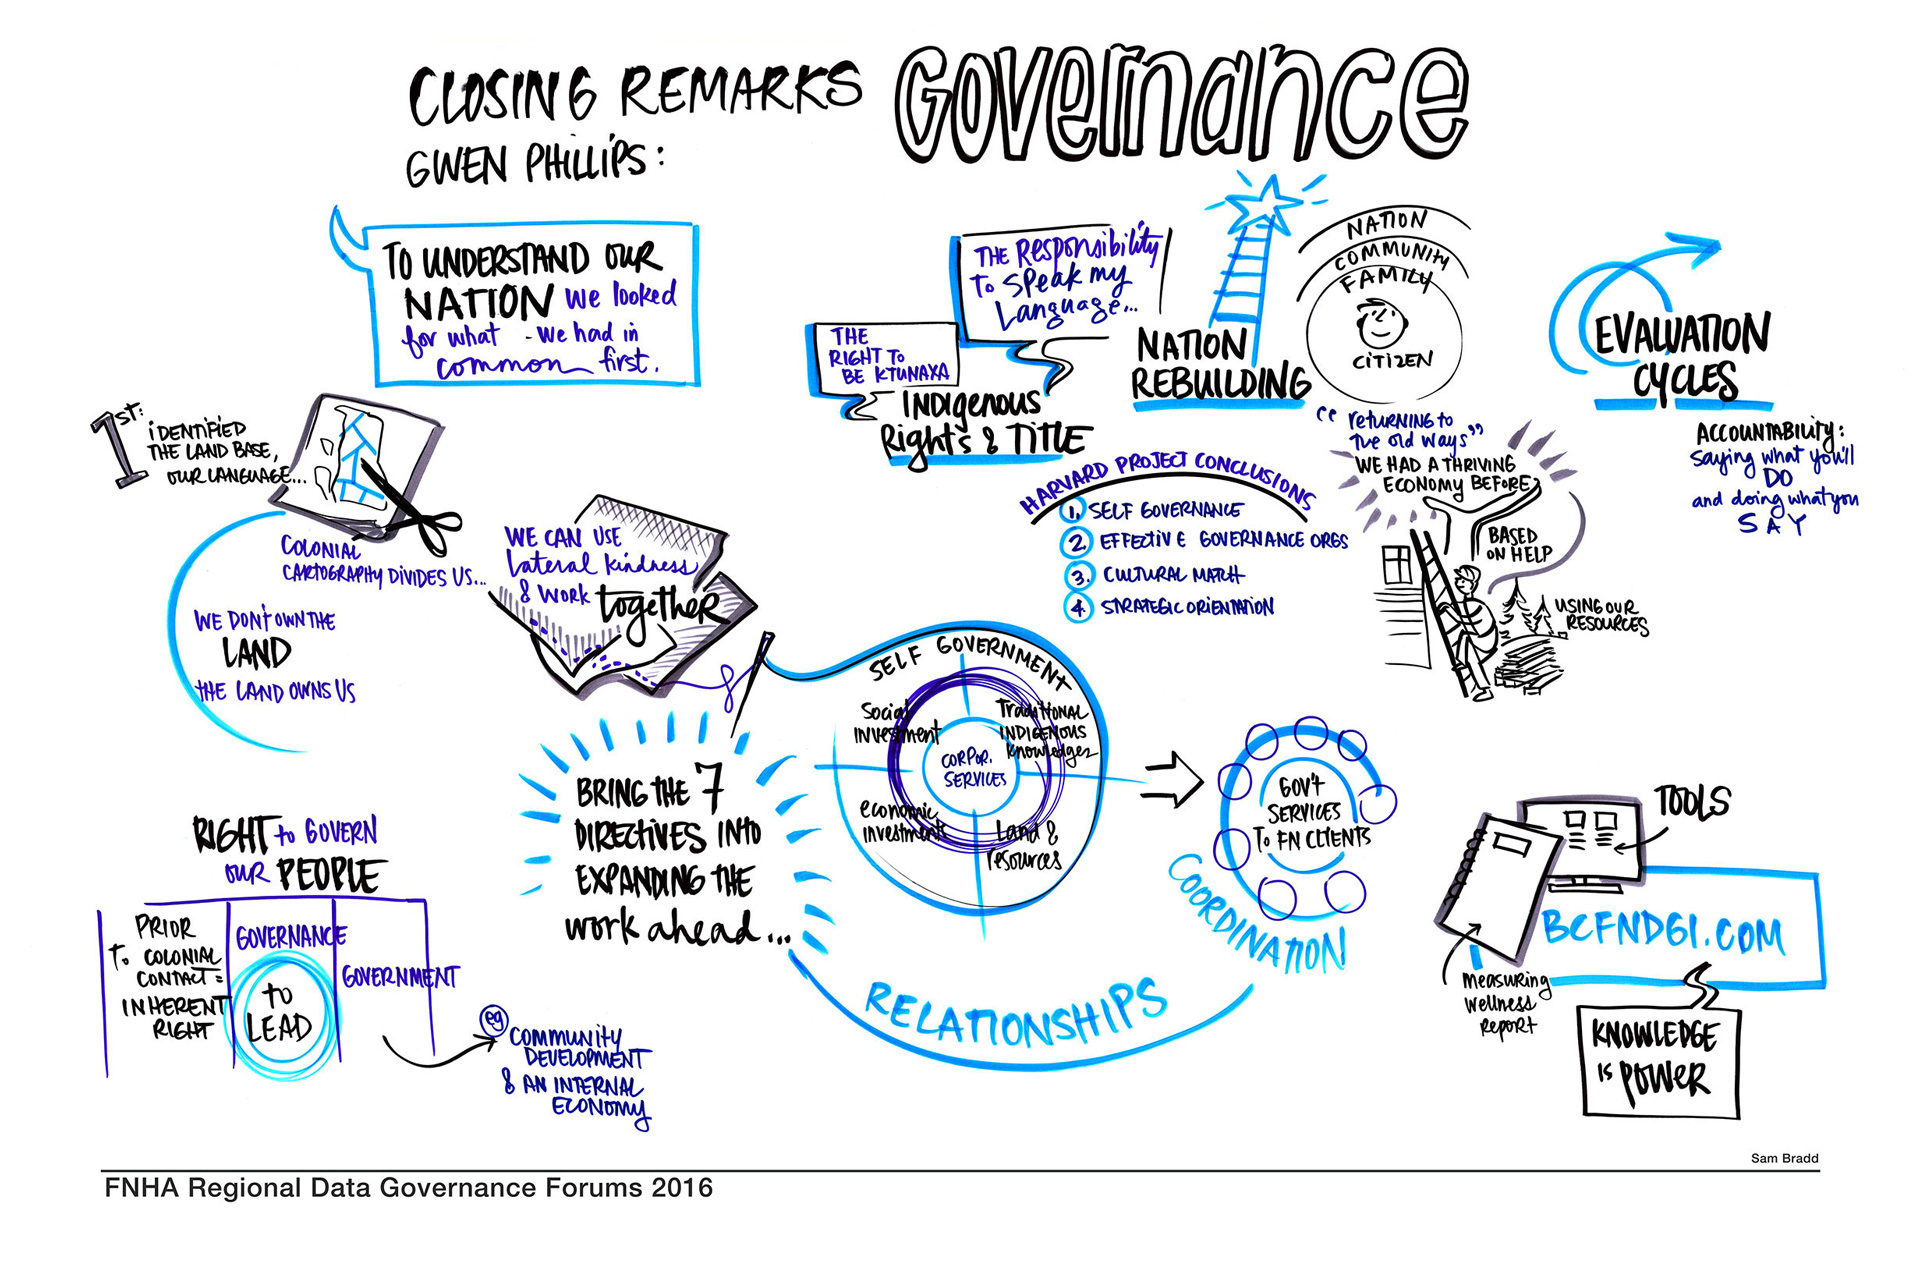 CLOSING REMARKS
GOVERNANCE
GWEN PHILLIPS:
TO UNDERSTAND OUR
NATION we looked
for what - we had in
common first.
1st:
IDENTIFIED
THE LAND BASE,
OUR LANGUAGE...
COLONIAL
CARTOGRAPHY DIVIDES US...
WE DON'T OWN THE
LAND
THE LAND OWNS US
WE CAN USE
Lateral kindness
& WORK together
THE RESPONSIBILITY
TO SPEAK MY
Language...
THE
RIGHT TO
BE KTUNAXA
INDIGENOUS
RIGHTS & TITLE
NATION
REBUILDING
NATION
COMMUNITY
FAMILY
CITIZEN
"returning to
the old ways"
WE HAD A THRIVING
ECONOMY BEFORE
BASED
ON HELP
USING OUR
RESOURCES
EVALUATION
CYCLES
ACCOUNTABILITY:
saying what you'll
DO
and doing what you
SAY
HARVARD PROJECT CONCLUSIONS
1. SELF GOVERNANCE
2. EFFECTIVE GOVERNANCE ORGS
3. CULTURAL MATCH
4. STRATEGIC ORIENTATION
RIGHT to GOVERN
OUR PEOPLE
PRIOR
TO COLONIAL
CONTACT =
INHERENT
RIGHT
GOVERNANCE
TO
LEAD
GOVERNMENT
eg
COMMUNITY
DEVELOPMENT
& AN INTERNAL
ECONOMY
BRING THE 7
DIRECTIVES INTO
EXPANDING THE
work ahead...
SELF GOVERNMENT
Social
Investment
Traditional
INDIGENOUS
Knowledges
CORPOR.
SERVICES
economic
investments
Land &
resources
RELATIONSHIPS
GOV'T
SERVICES
TO FN CLIENTS
COORDINATION
TOOLS
BCFNDGI.COM
Measuring
Wellness
Report
KNOWLEDGE
is POWER
Sam Bradd
FNHA Regional Data Governance Forums 2016